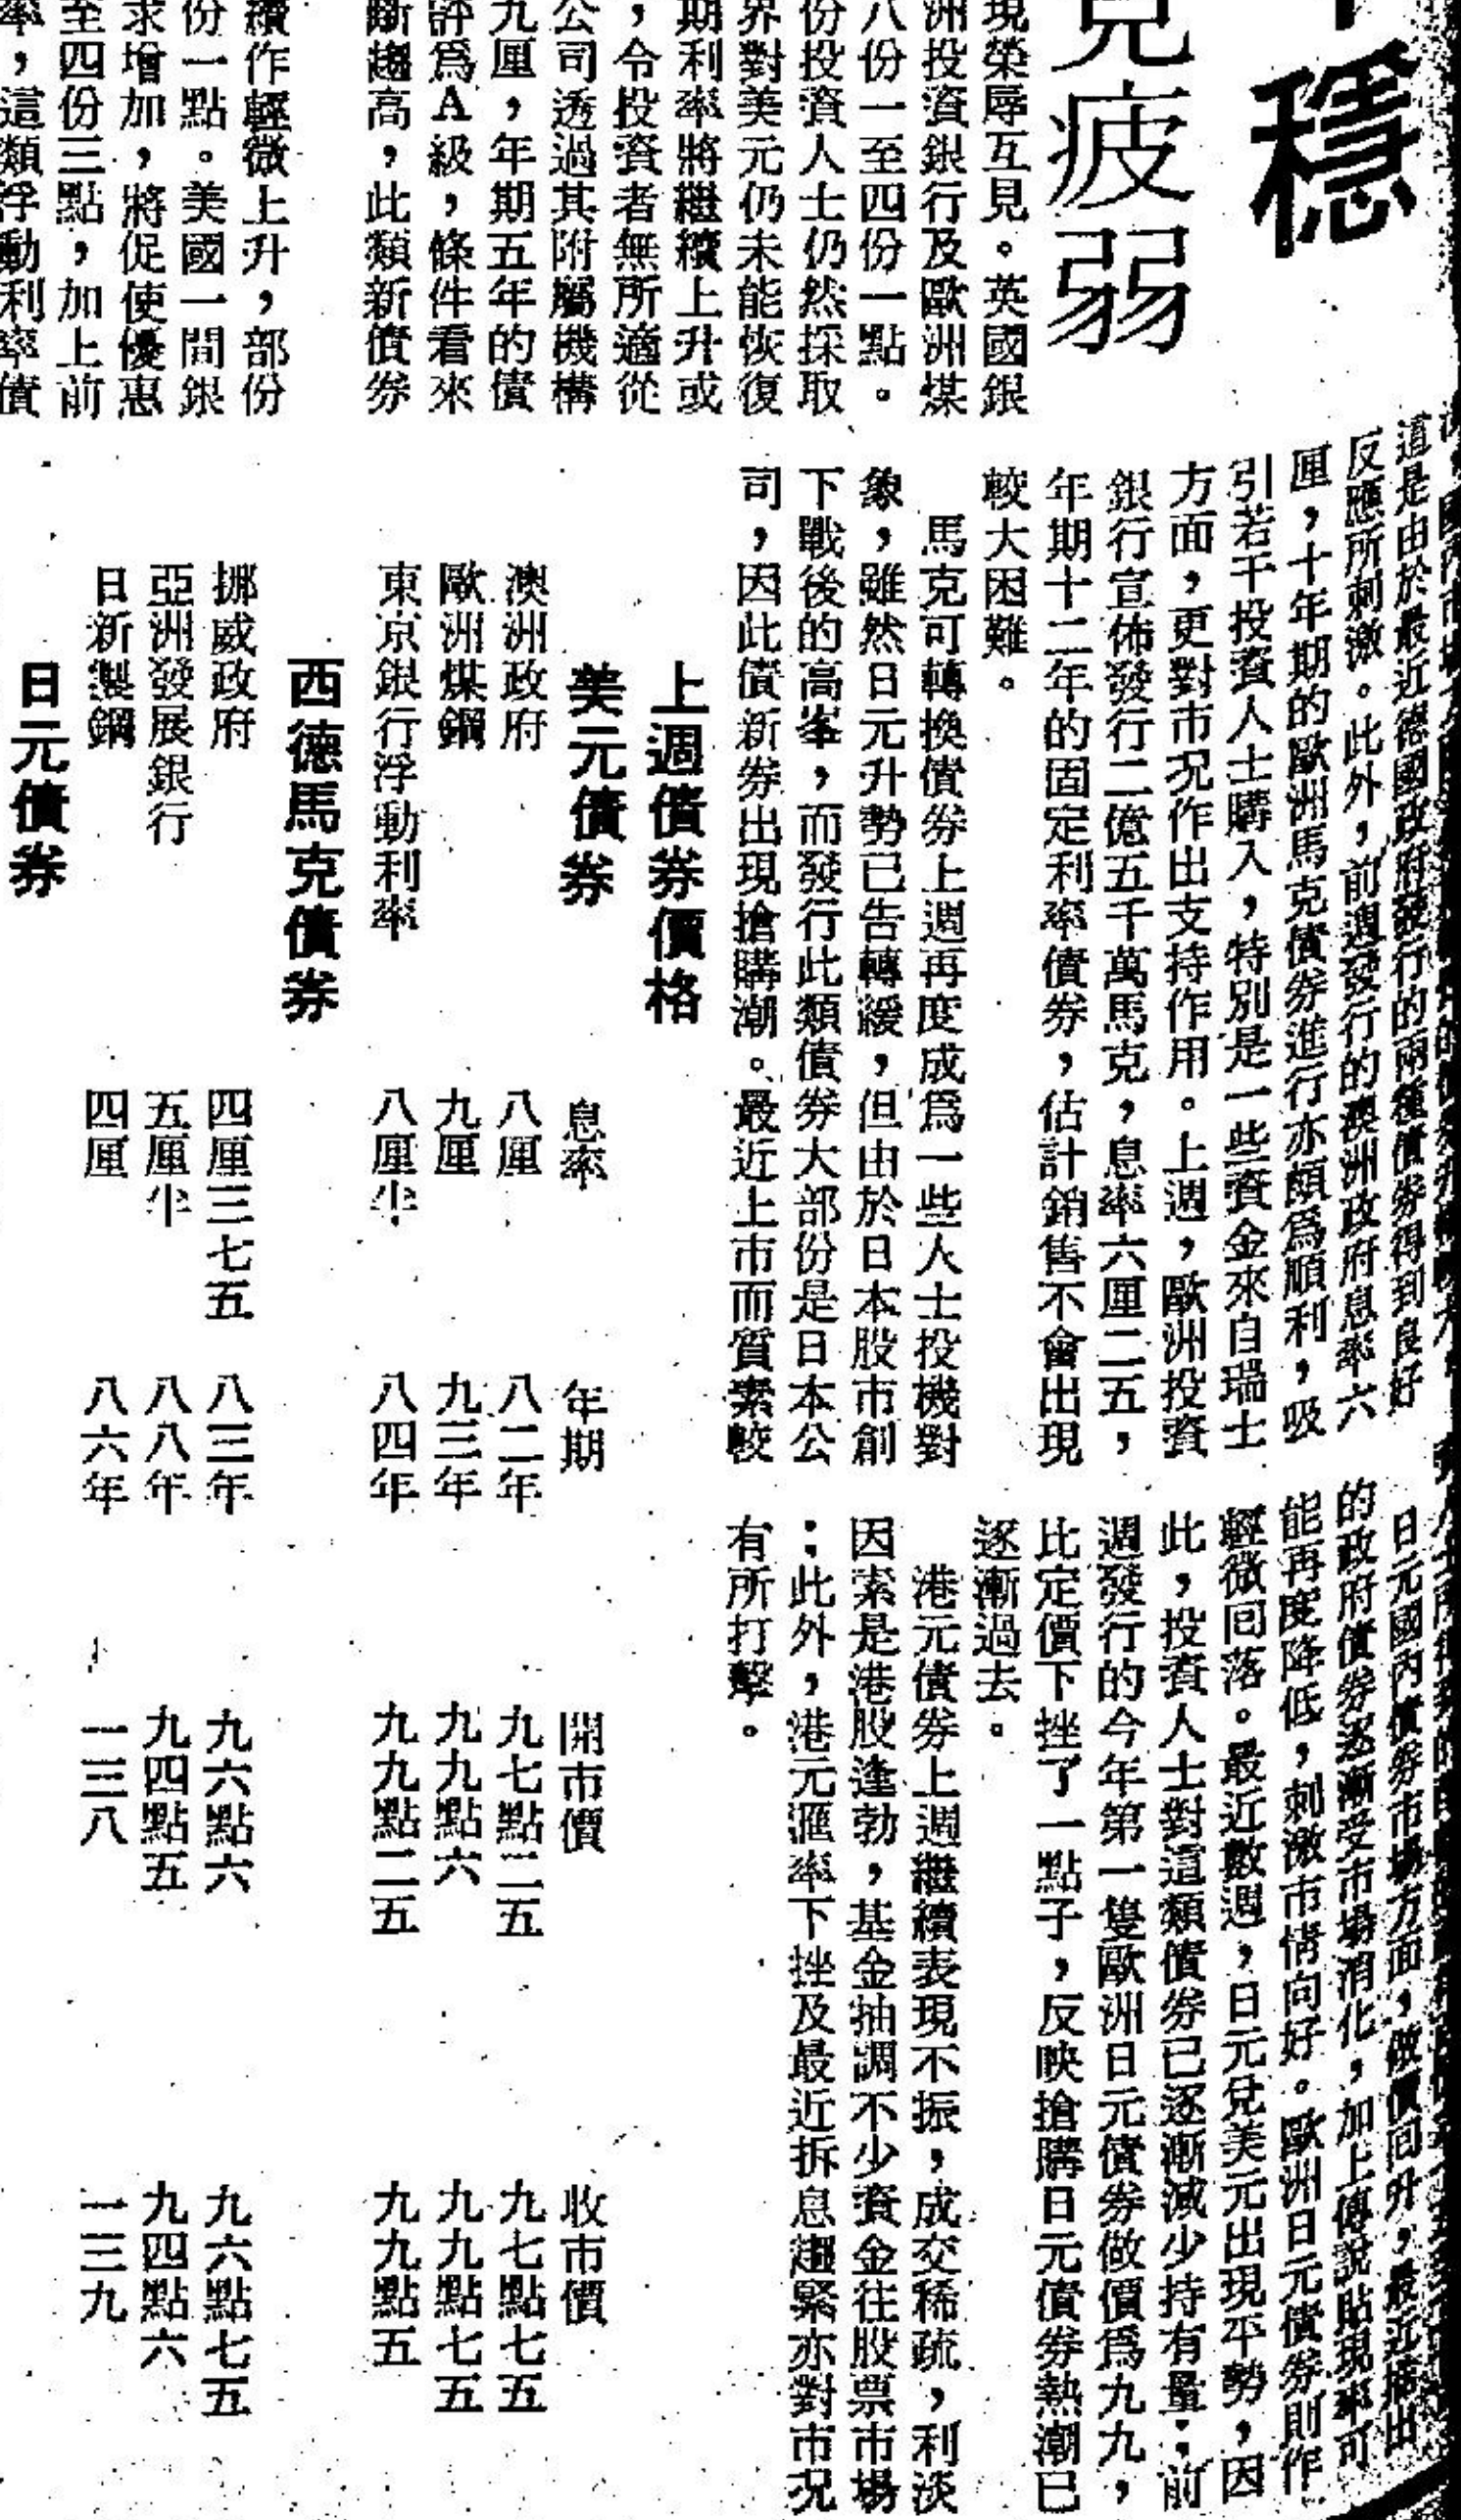 穩
克疲弱
現榮辱互見。英國銀
洲投資銀行及歐洲煤
八份一至四份一點。
份投資人士仍然採取
界對美元仍未能恢復
期利率將繼續上升或
，令投資者無所適從
公司透過其附屬機構
九厘，年期五年的債
評爲A級，條件看來
斷趨高，此類新債券
續作輕微上升，部份
份一點。美國一間銀
求增加，將促使優惠
至四份三點，加上前
率，這類浮動利率債
這是由於最近德國政府發行的兩種債券得到良好
反應所刺激。此外，前週發行的澳洲政府息率六
厘，十年期的歐洲馬克債券進行亦頗爲順利，吸
引若干投資人士購入，特別是一些資金來自瑞士
方面，更對市況作出支持作用。上週，歐洲投資
銀行宣佈發行二億五千萬馬克，息率六厘二五，
年期十二年的固定利率債券，估計銷售不會出現
較大困難。
馬克可轉換債券上週再度成爲一些人士投機對
象，雖然日元升勢已告轉緩，但由於日本股市創
下戰後的高峯，而發行此類債券大部份是日本公
司，因此債新券出現搶購潮。最近上市而質素較
日元國內債券市場方面，做價回升，最近推出
的政府債券逐漸受市場消化，加上傳說貼現率可
能再度降低，刺激市情向好。歐洲日元債券則作
輕微回落。最近數週，日元兌美元出現平勢，因
此，投資人士對這類債券已逐漸減少持有量；前
週發行的今年第一隻歐洲日元債券做價爲九九，
比定價下挫了一點子，反映搶購日元債券熱潮已
逐漸過去。
港元債券上週繼續表現不振，成交稀疏，利淡
因素是港股蓬勃，基金抽調不少資金往股票市場
；此外，港元滙率下挫及最近拆息趨緊亦對市況
有所打擊。
上週債券價格
美元債券 息率 年期 開市價 收市價
澳洲政府 八厘 八二年 九七點二五 九七點七五
歐洲煤鋼 九厘 九三年 九九點六 九九點七五
東京銀行浮動利率 八厘半 八四年 九九點二五 九九點五
西德馬克債券
挪威政府 四厘三七五 八三年 九六點六 九六點七五
亞洲發展銀行 五厘半 八八年 九四點五 九四點六
日新製鋼 四厘 八六年 一三八 一三九
日元債券